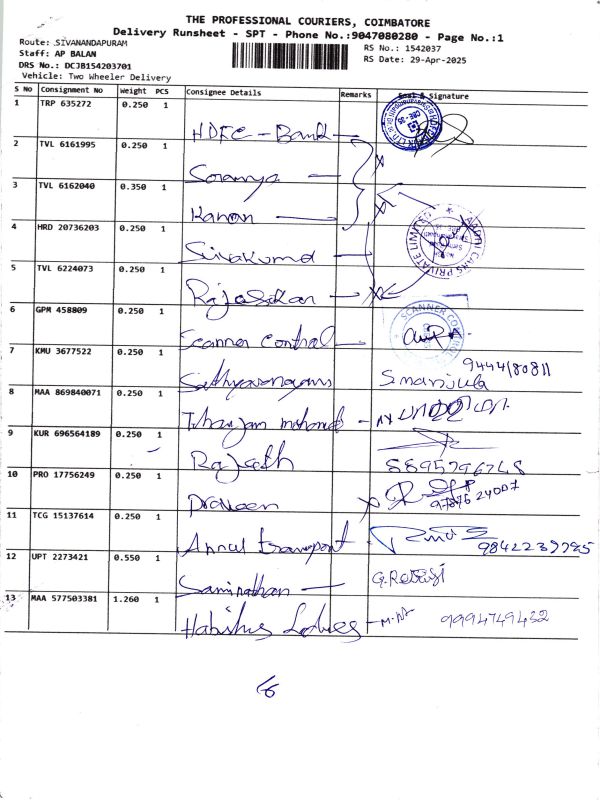 THE PROFESSIONAL COURIERS, COIMBATORE
Delivery Runsheet - SPT - Phone No.:9047080280 - Page No.:1
Route: SIVANANDAPURAM
RS No.: 1542037
Staff: AP BALAN
RS Date: 29-Apr-2025
DRS No.: DCJB154203701
Vehicle: Two Wheeler Delivery
S No Consignment No Weight PCS Consignee Details Remarks Seal & Signature
1 TRP 635272 0.250 1 HDFC - Bank
2 TVL 6161995 0.250 1
3 TVL 6162040 0.350 1 Kanan
4 HRD 20736203 0.250 1 Sivakumar
5 TVL 6224073 0.250 1 Rajasekaran
6 GPM 458809 0.250 1 Scanner Control
7 KMU 3677522 0.250 1 Sathyanarayanan 9444180811
Smanjula
8 MAA 869840071 0.250 1
9 KUR 696564189 0.250 1 8895796748
10 PRO 17756249 0.250 1 Praveen
11 TCG 15137614 0.250 1 transport
12 UPT 2273421 0.550 1 Saminathan
13 MAA 577503381 1.260 1 9994749432